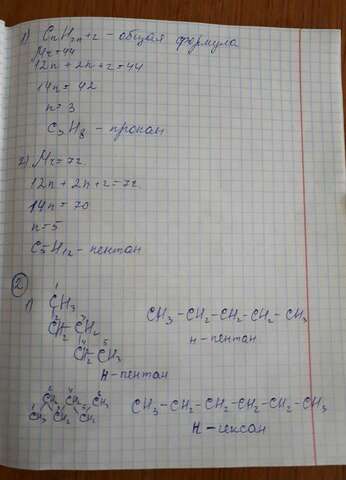 1) CnH2n+2 - общая формула
Mr=44
12n+2n+2=44
14n=42
n=3
C3H8 - пропан
2) Mr=72
12n+2n+2=72
14n=70
n=5
C5H12 - пентан
2
1) 1
CH3
2 3
CH2 CH2
4 5
CH2 CH3
н-пентан
CH3-CH2-CH2-CH2-CH3
н-пентан
CH3-CH2-CH2-CH2-CH2-CH3
н-гексан